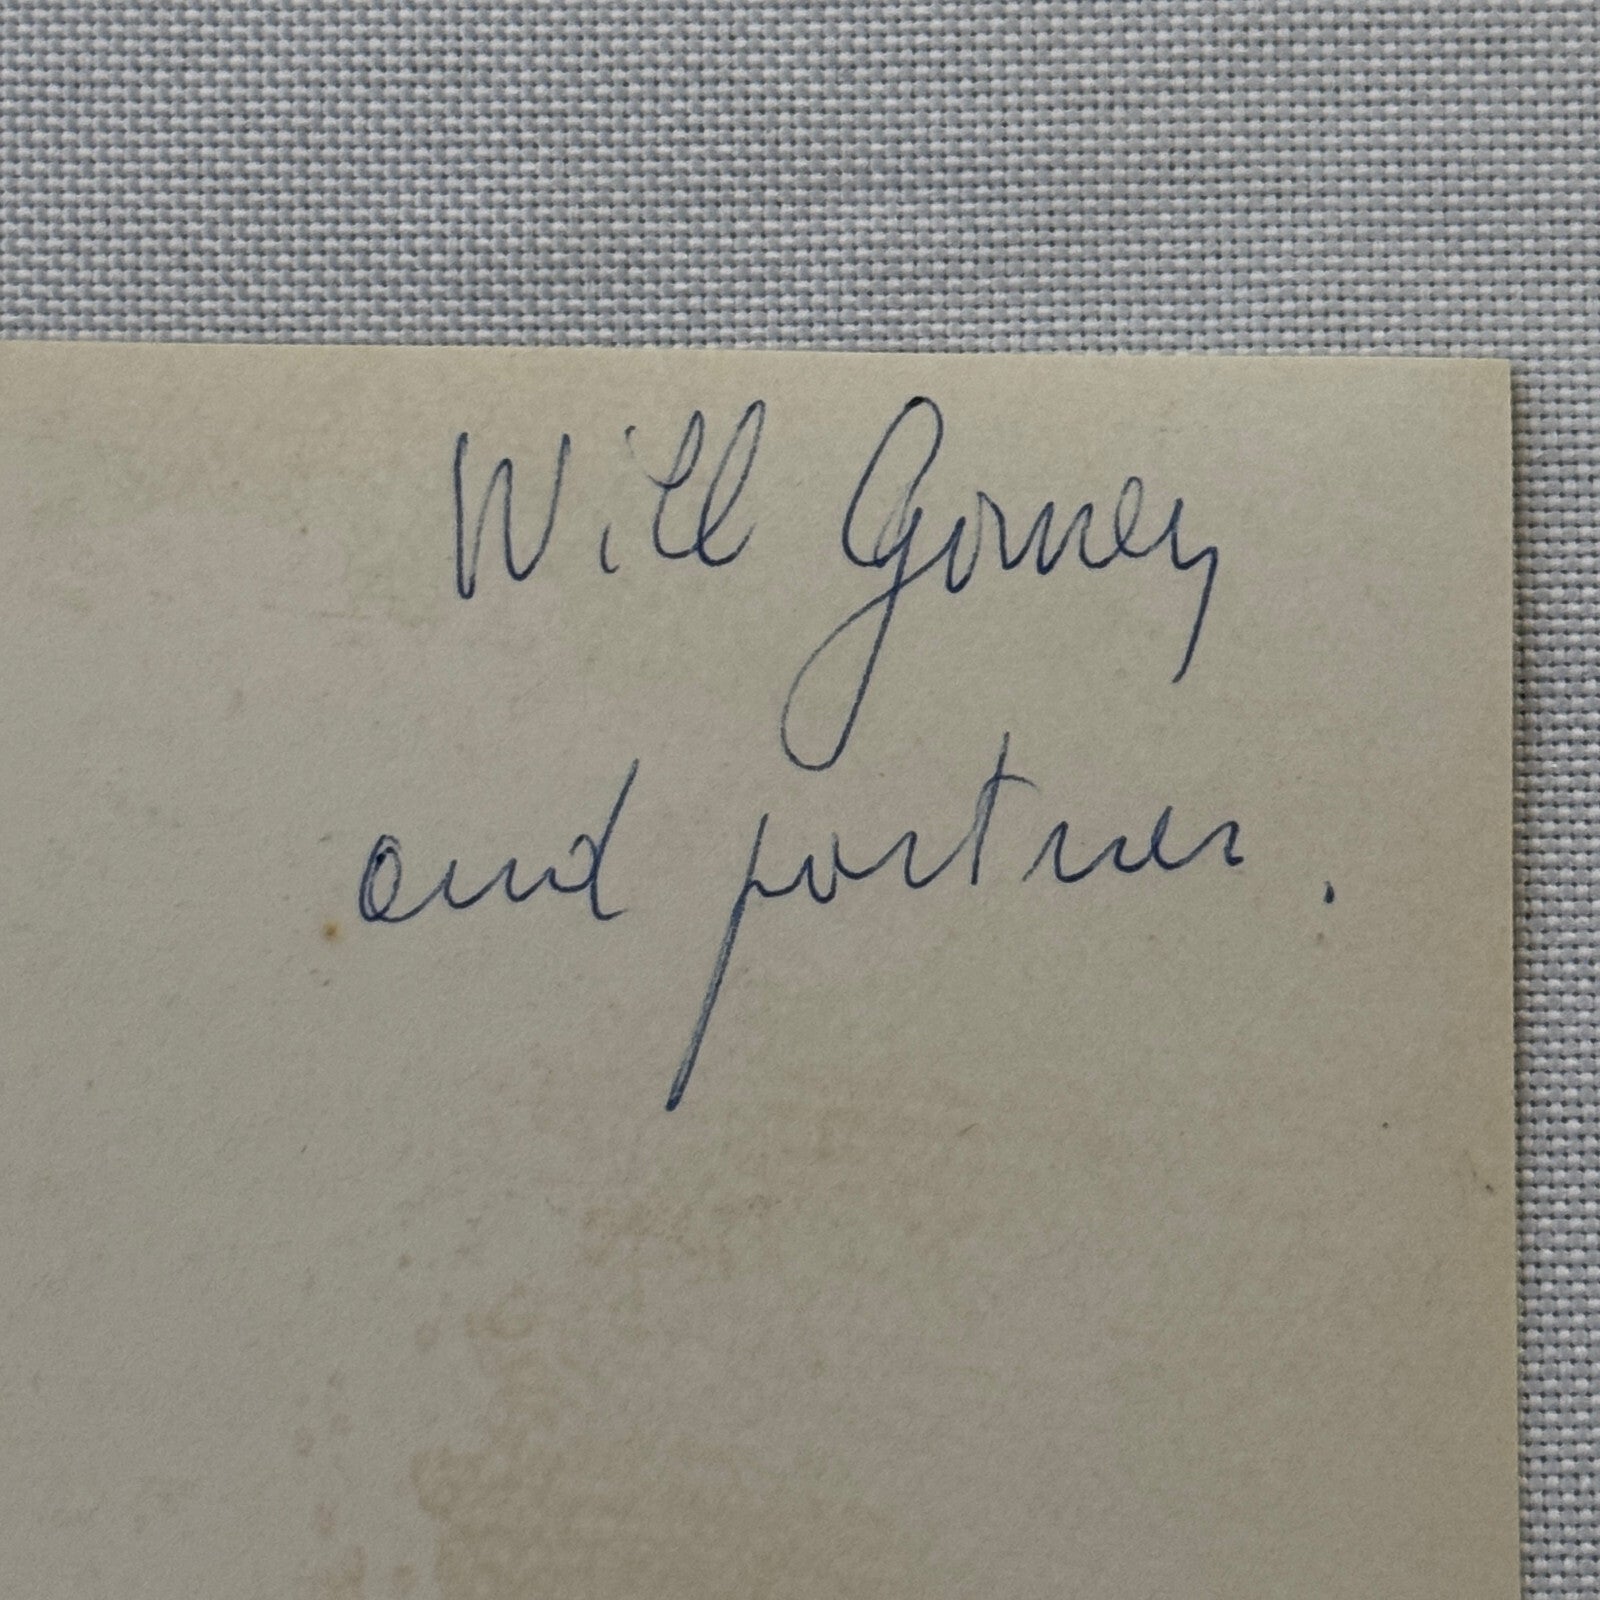 Will Gorney
and partner.